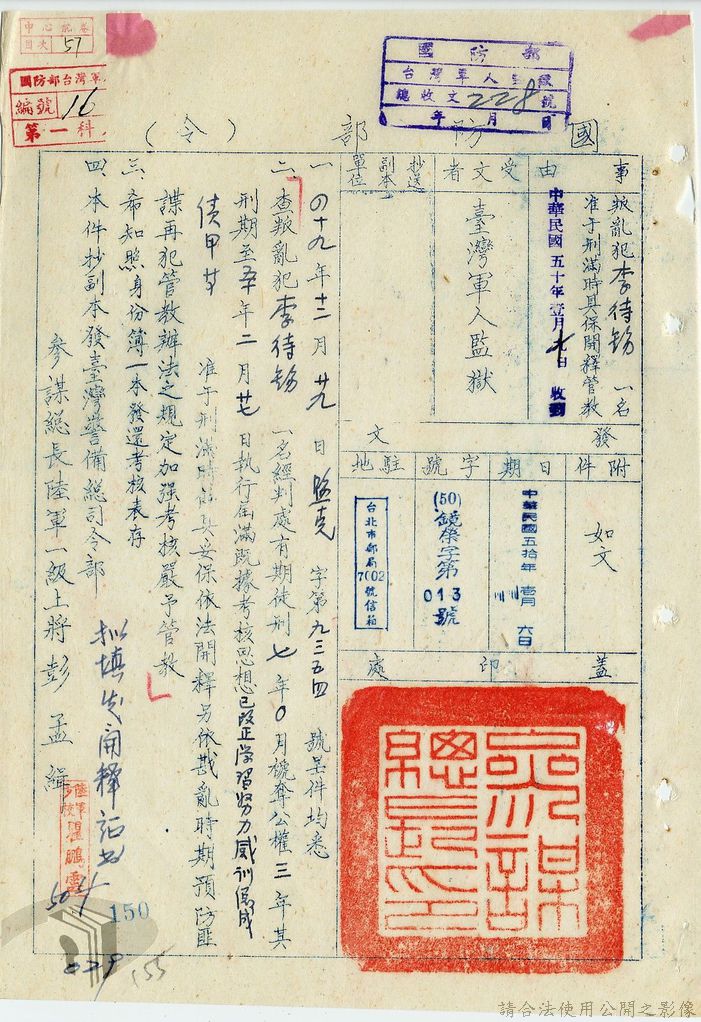 中心訊卷
目次 57
國防部台灣軍人
編號 16
第一科
國防部
台灣軍人監獄
總收文 228 號
年 月 日
國防部（令）
事由
叛亂犯李待錫一名
准予刑滿時具保開釋管教
中華民國五十年壹月七日收到
受文者
臺灣軍人監獄
抄送副本單位
發文
附件
如文
日期
中華民國五拾年壹月六日
字號
(50)鏡榮字第013號
駐地
台北市郵局7002號信箱
蓋印處
參謀總長印
一、四十九年十二月廿九日監克字第九三五四號呈件均悉
二、查叛亂犯李待錫一名經判處有期徒刑七年0月褫奪公權三年其
刑期至五0年二月廿七日執行屆滿既據考核思想已改正學習努力感訓
准予刑滿時偱具妥保依法開釋另依戡亂時期預防匪
諜再犯管教辦法之規定加强考核嚴予管教
三、希知照身份簿一本發還考核表存
四、本件抄副本發臺灣警備總司令部
參謀總長陸軍一級上將彭孟緝
擬填發開釋證書
150
029
155
請合法使用公開之影像